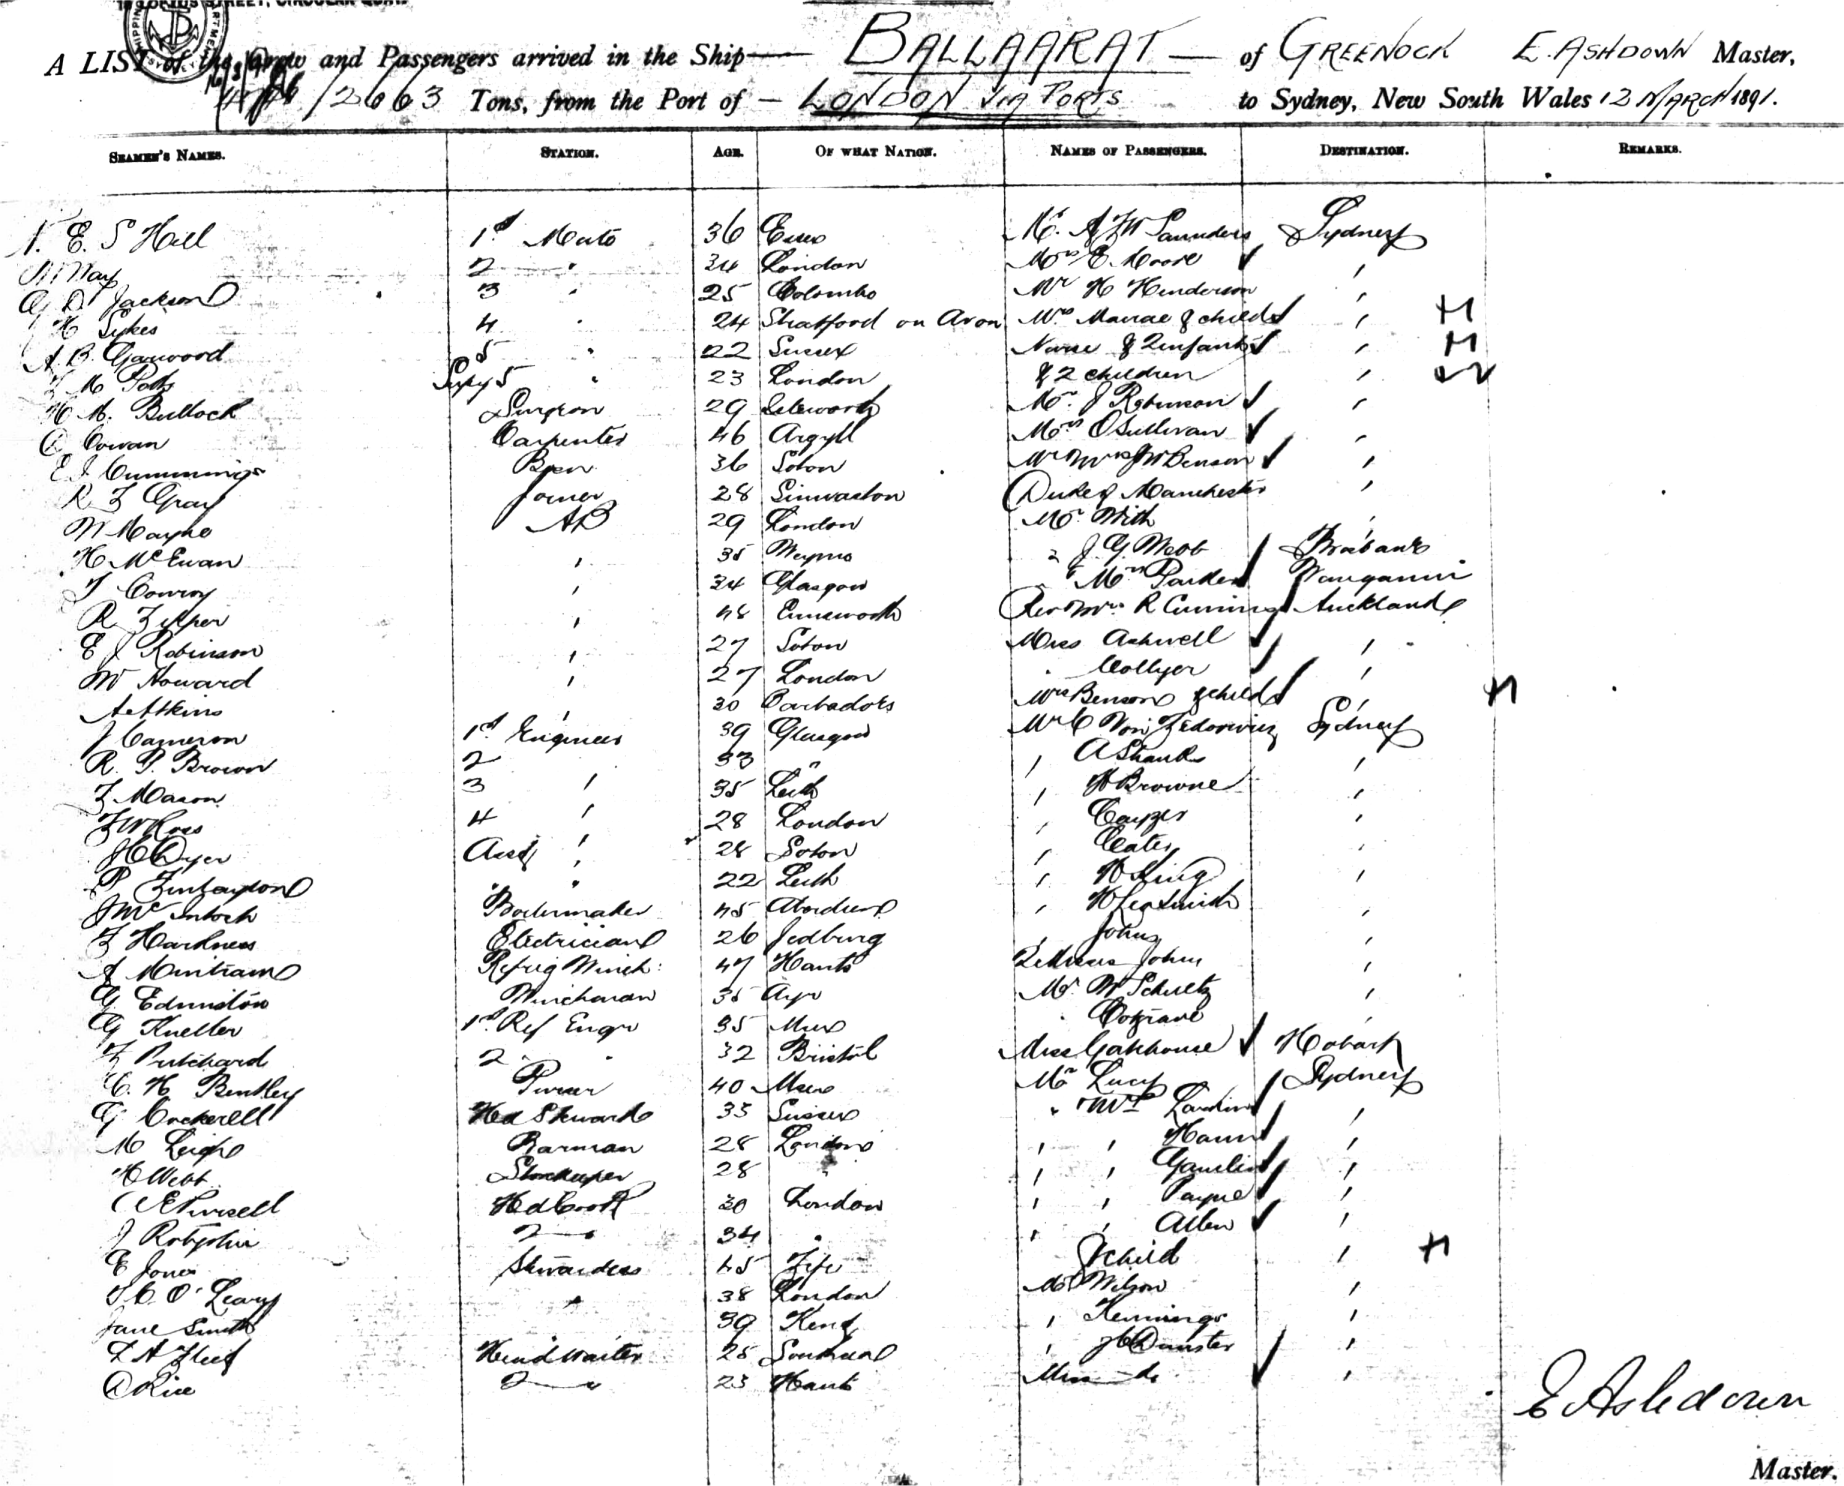 A LIST of the Crew and Passengers arrived in the Ship — BALLAARAT — of GREENOCK E. ASHDOWN Master,
/2663 Tons, from the Port of — LONDON VIA PORTS to Sydney, New South Wales 12 MARCH 1891.
SEAMEN'S NAMES. STATION. AGE. OF WHAT NATION. NAMES OF PASSENGERS. DESTINATION. REMARKS.
E. S Hall 1st Mate 36 Essex Mr. A F W Saunders Sydney
W May 2 " 34 London Mrs E. Moore "
G D Jackson 3 " 25 Colombo Mr H Henderson "
H Sykes 4 " 24 Stratford on Avon Mrs & child "
A. B. Garwood 5 " 22 Sussex Nurse & 2 infants "
M Potts Supy 5 " 23 London & 2 children "
H. M. Bullock Surgeon 29 Mr. J Robinson "
Cowan Carpenter 46 Argyll Mrs O'Sullivan "
E J Cummings Bosn 36 Soton Mr & Mrs J W Benson "
R F Gray Joiner 28 Duke of Manchester "
W Mayne AB 29 London Mr. With "
H. McEwan " 35 " J. G. Webb Brisbane
T Conroy " 34 Glasgow " Mrs Parker Wanganui
R. " 48 Emsworth Rev & Mrs R Cumming Auckland
E J Robinson " 27 Soton Miss Ashwell "
W Howard " 27 London " Collyer "
Aetkins " 30 Barbadoes Mrs Benson & child "
J Cameron 1st Engineer 39 Glasgow Mr C Von Sydney
R. P. Brown 2 33 " " A Shanks "
F Mason 3 " 35 Leith " H Browne "
F W Ross 4 " 28 London " "
J C Dyer Asst " 28 Soton " Cater "
P Finlayson " 22 Leith " H King "
J McIntosh Boilermaker 45 Aberdeen " "
F Harkness Electrician 26 Jedburg " Johns "
A Mintram Refrig Winch: 47 Hants 2 Misses Johns "
G. Edmiston Winchman 35 Ayr Mr. W Schultz "
G Kneller 1st Ref Engr 35 " "
F Pritchard 2 " 32 Bristol Miss Gatehouse Hobart
C. H Bentley Purser 40 Mr Lucy Sydney
G Cockerell Hed Steward 35 Sussex " Mrs "
M Leigh Barman 28 London " " "
H Webb Storekeeper 28 " " " "
C E Pursell Hd Cook 30 London " " Payne "
J 2 34 " " " Allen "
E Jones Stewardess 45 Fife & child "
O'Leary " 38 London Mr Wilson "
Jane Smith 39 Kent " Kennings "
F A Fleet Head Waiter 25 " J C Dunster "
C Rice 2 23 Hants Miss do "
E Ashdown
Master.